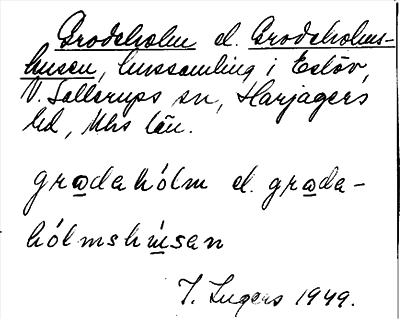 Grodeholm el. Grodeholms-
husen, hussamling i Eslöv,
V. Sallerups sn, Harjagers
hd, Mhs län.
grɑdahólm el. grɑda-
hólmshúsan
I. Ingers 1949.